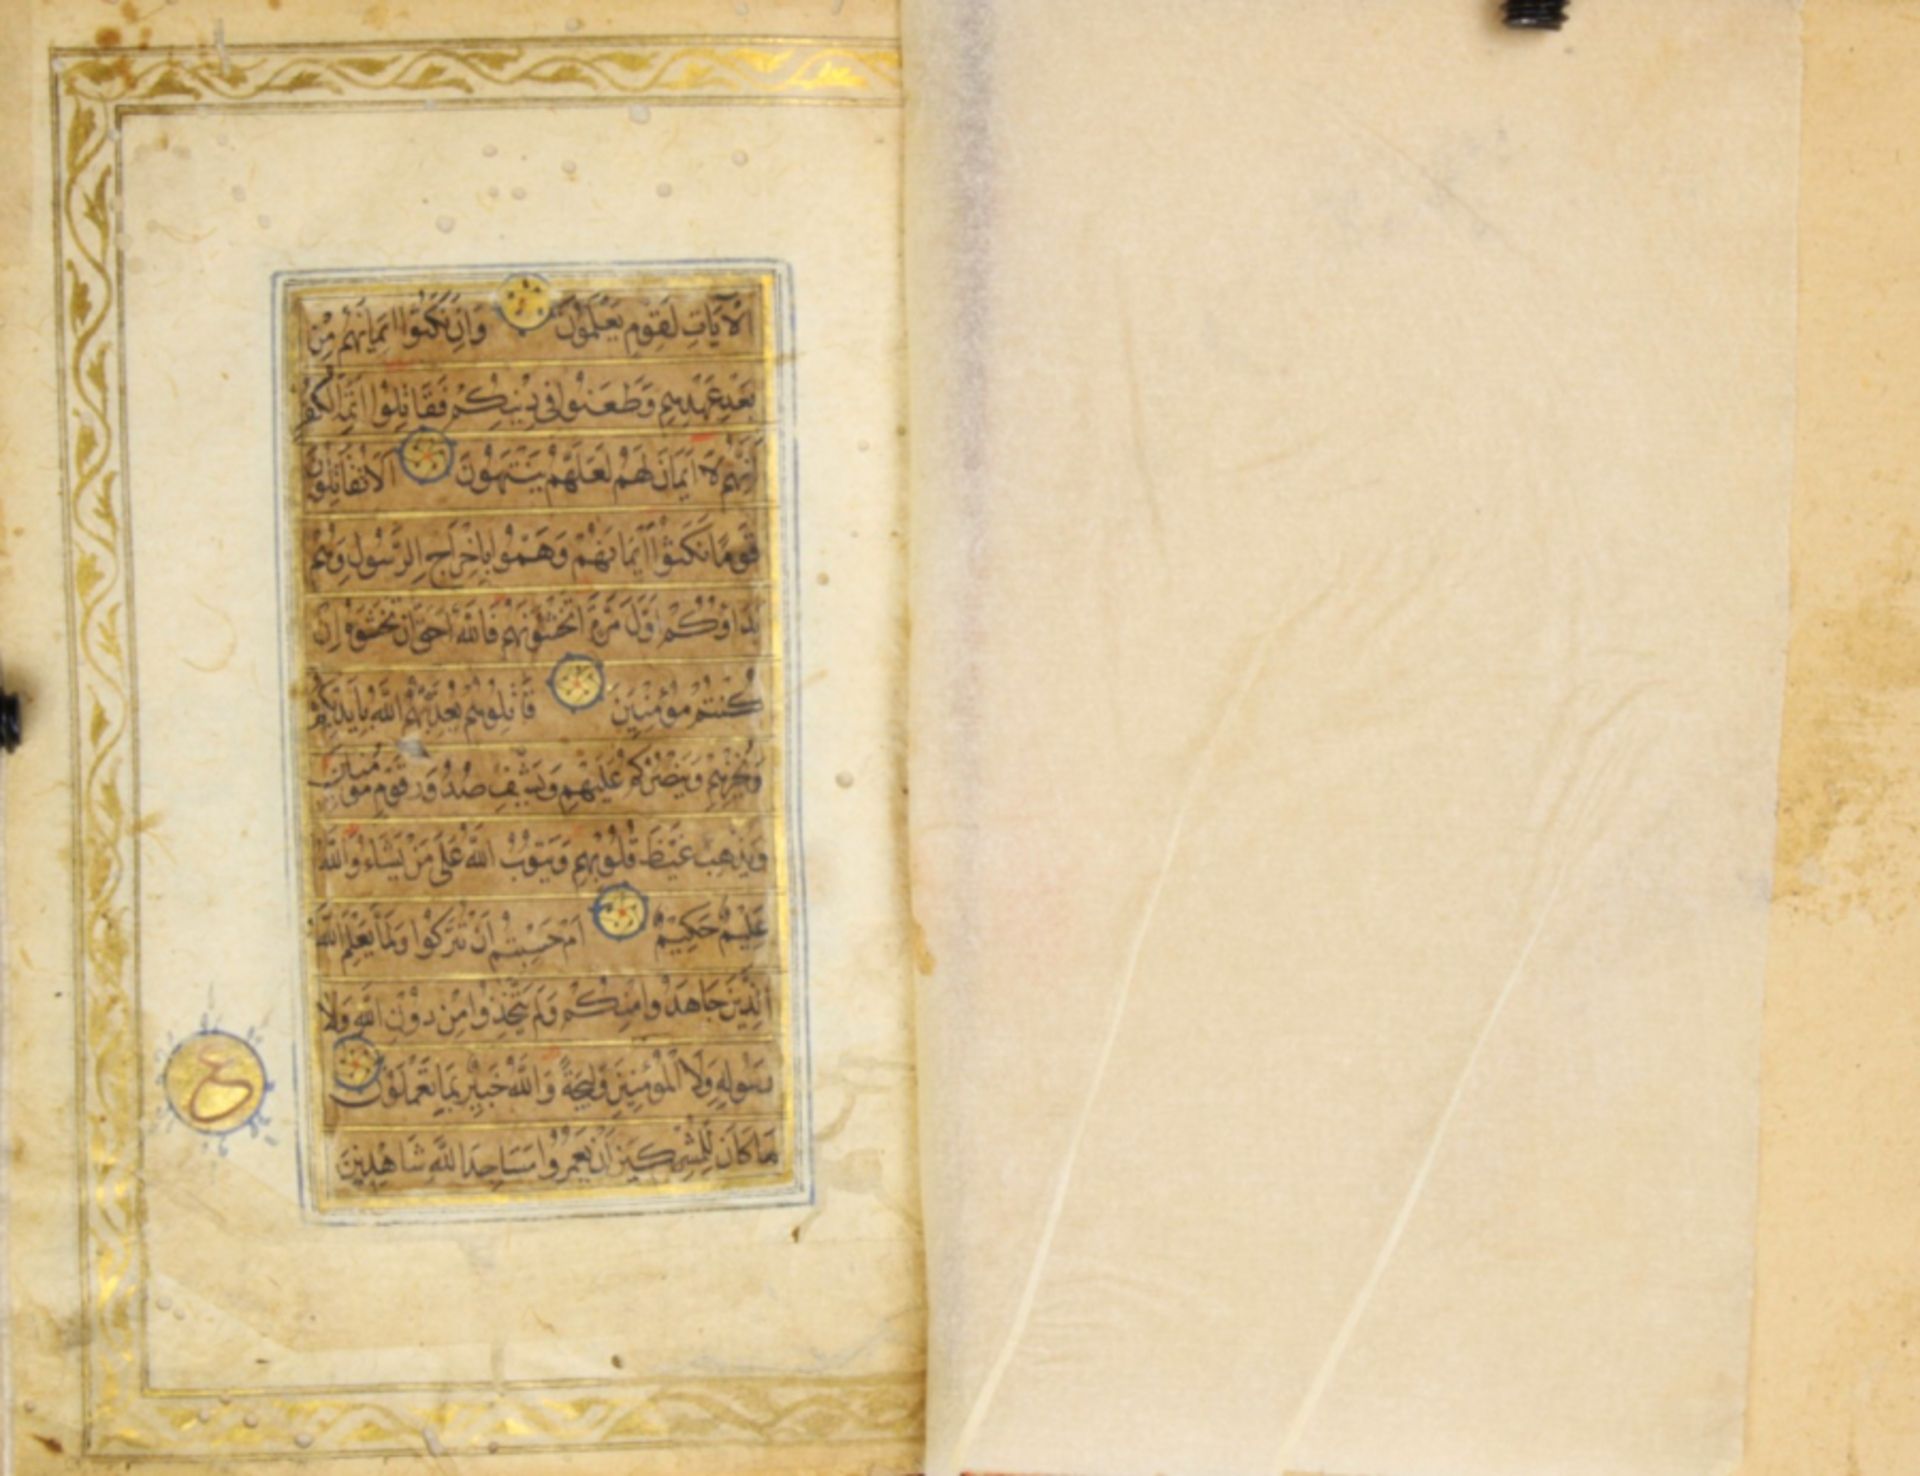 الْآيَاتِ لِقَوْمٍ يَعْلَمُونَ وَاِنْ نَكَثُوا اَيْمَانَهُمْ مِنْ
بَعْدِ عَهْدِهِمْ وَطَعَنُوا فِي دِينِكُمْ فَقَاتِلُوا اَئِمَّةَ الْكُفْرِ
اِنَّهُمْ لَا اَيْمَانَ لَهُمْ لَعَلَّهُمْ يَنْتَهُونَ اَلَا تُقَاتِلُونَ
قَوْمًا نَكَثُوا اَيْمَانَهُمْ وَهَمُّوا بِاِخْرَاجِ الرَّسُولِ وَهُمْ
بَدَاؤُكُمْ اَوَّلَ مَرَّةٍ اَتَخْشَوْنَهُمْ فَاللّٰهُ اَحَقُّ اَنْ تَخْشَوْهُ اِنْ
كُنْتُمْ مُؤْمِنِينَ قَاتِلُوهُمْ يُعَذِّبْهُمُ اللّٰهُ بِاَيْدِيكُمْ
وَيُخْزِهِمْ وَيَنْصُرْكُمْ عَلَيْهِمْ وَيَشْفِ صُدُورَ قَوْمٍ مُؤْمِنِينَ
وَيُذْهِبْ غَيْظَ قُلُوبِهِمْ وَيَتُوبُ اللّٰهُ عَلَى مَنْ يَشَاءُ وَاللّٰهُ
عَلِيمٌ حَكِيمٌ اَمْ حَسِبْتُمْ اَنْ تُتْرَكُوا وَلَمَّا يَعْلَمِ اللّٰهُ
الَّذِينَ جَاهَدُوا مِنْكُمْ وَلَمْ يَتَّخِذُوا مِنْ دُونِ اللّٰهِ وَلَا
رَسُولِهِ وَلَا الْمُؤْمِنِينَ وَلِيجَةً وَاللّٰهُ خَبِيرٌ بِمَا تَعْمَلُونَ
مَا كَانَ لِلْمُشْرِكِينَ اَنْ يَعْمُرُوا مَسَاجِدَ اللّٰهِ شَاهِدِينَ
ع